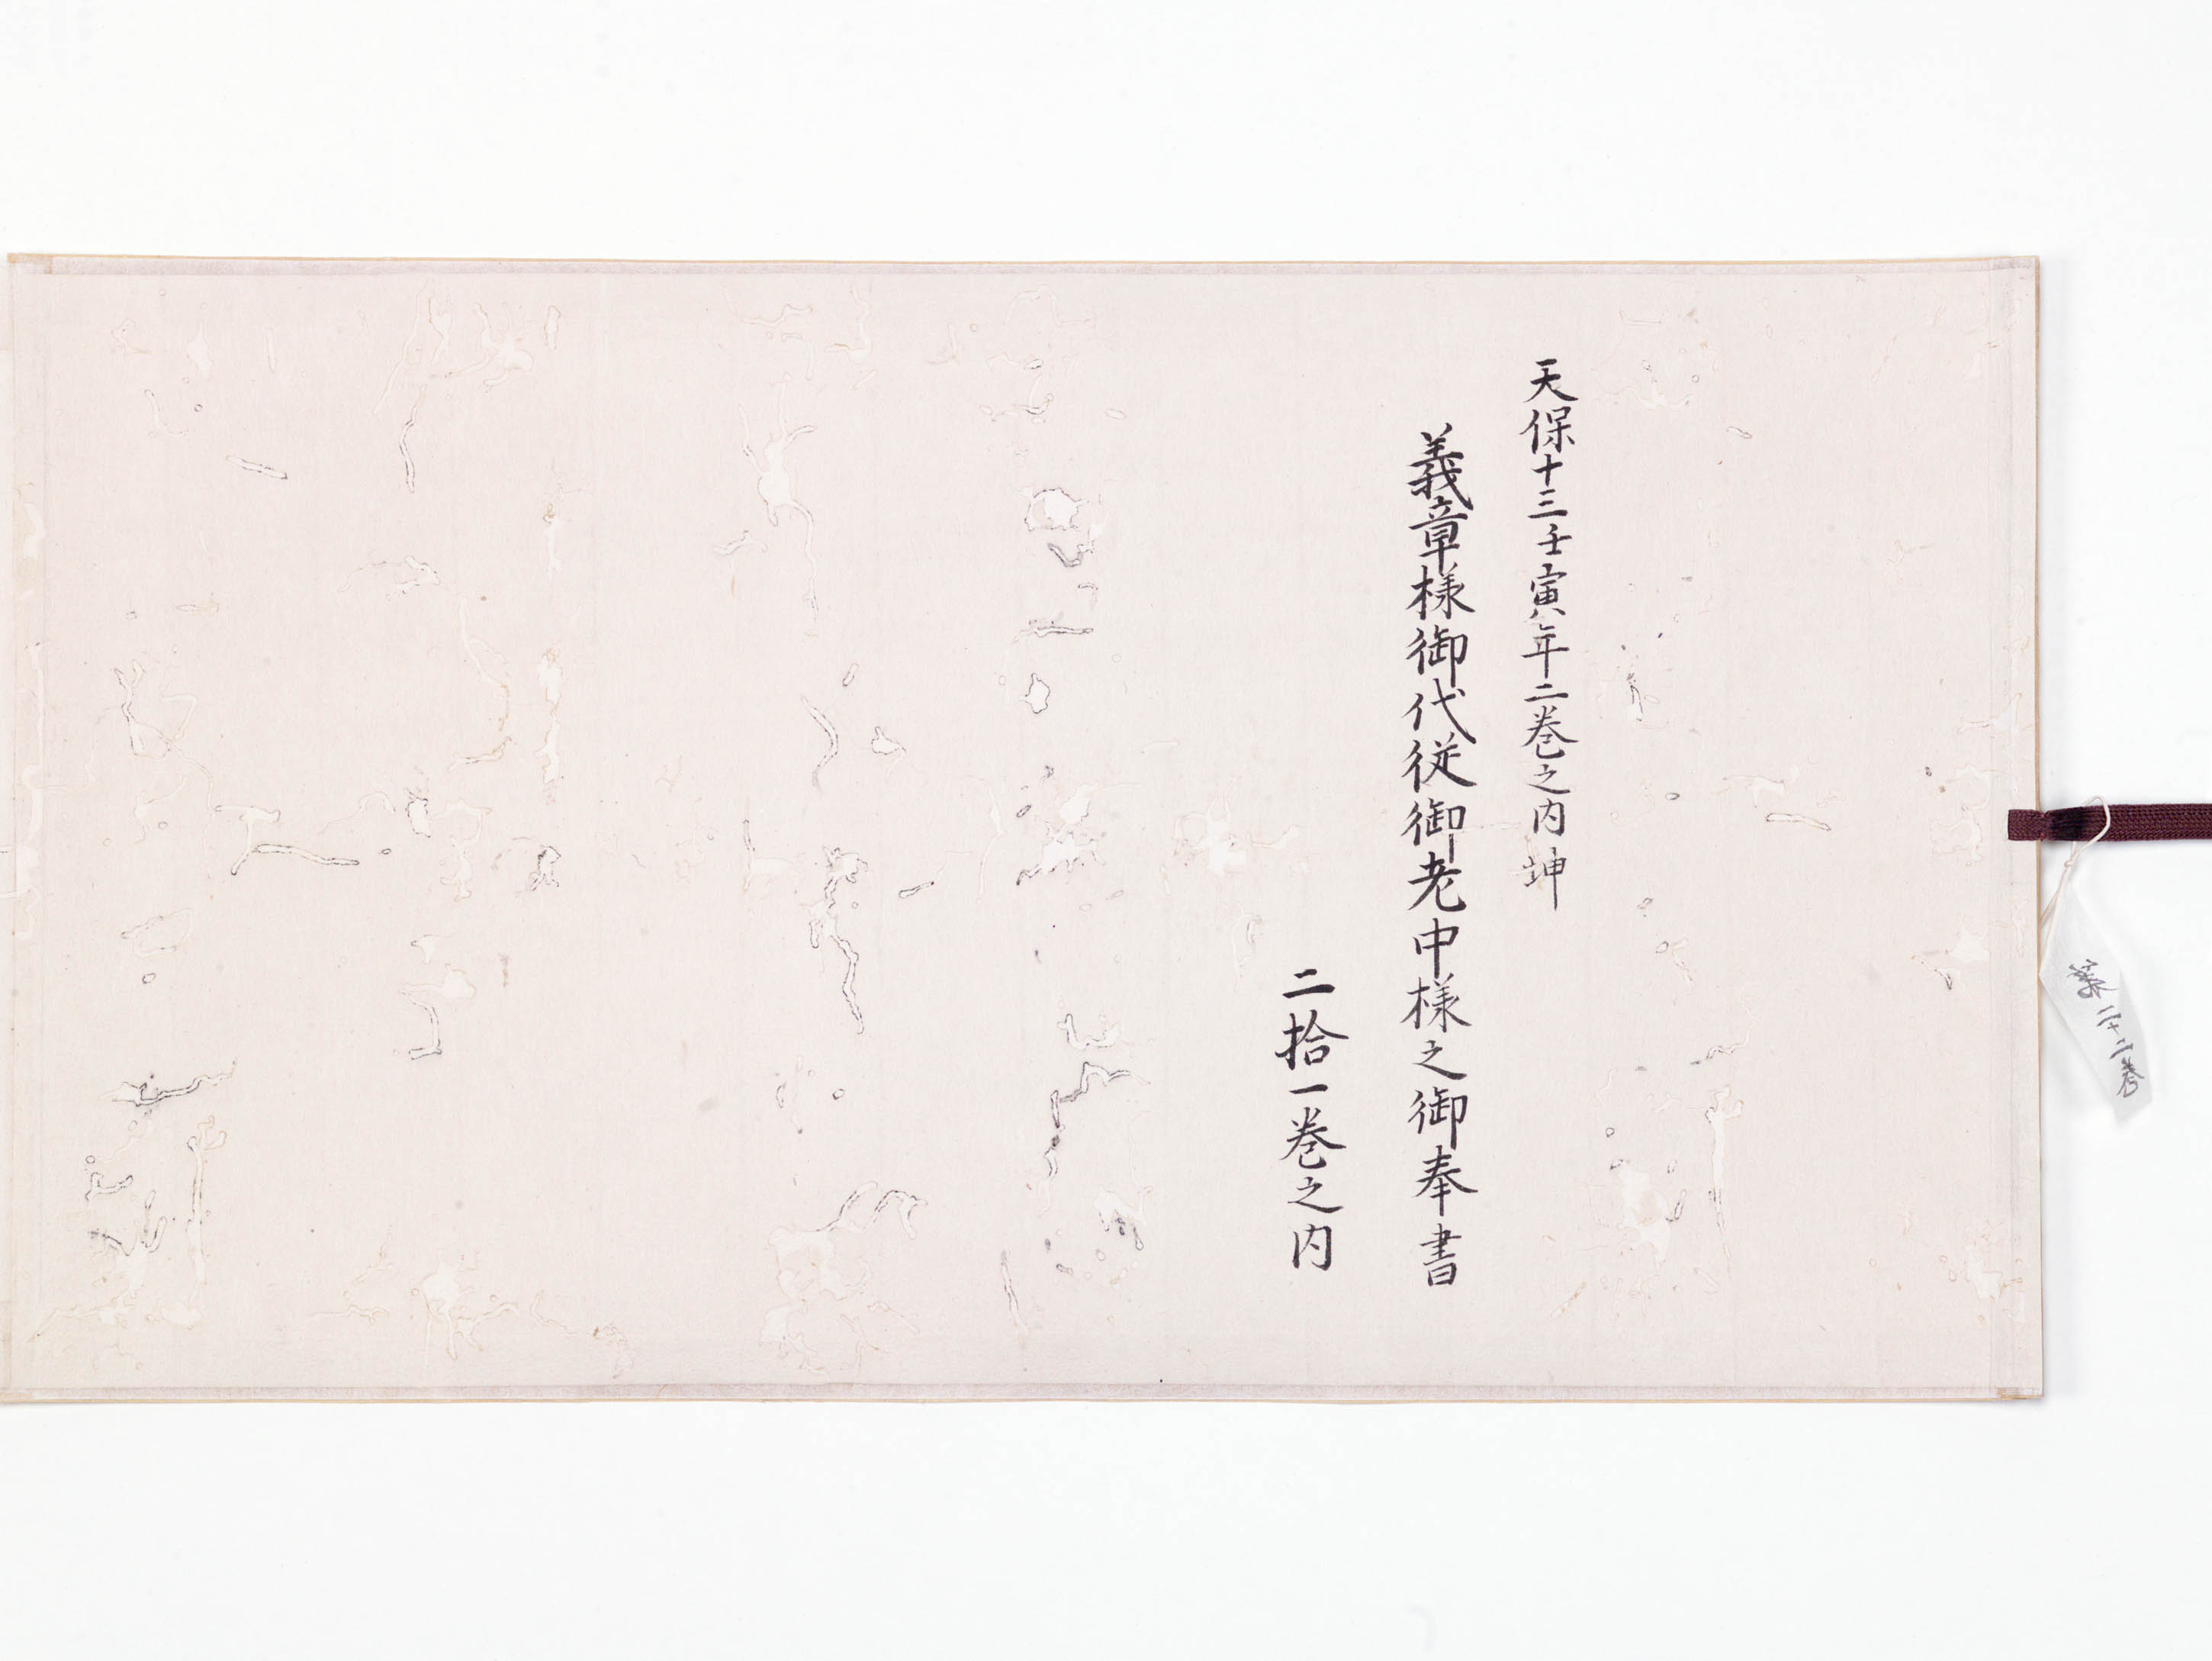 第二十二巻
天保十三壬寅年二巻之内 坤
義章様御代従御老中様之御奉書
二拾一巻之内